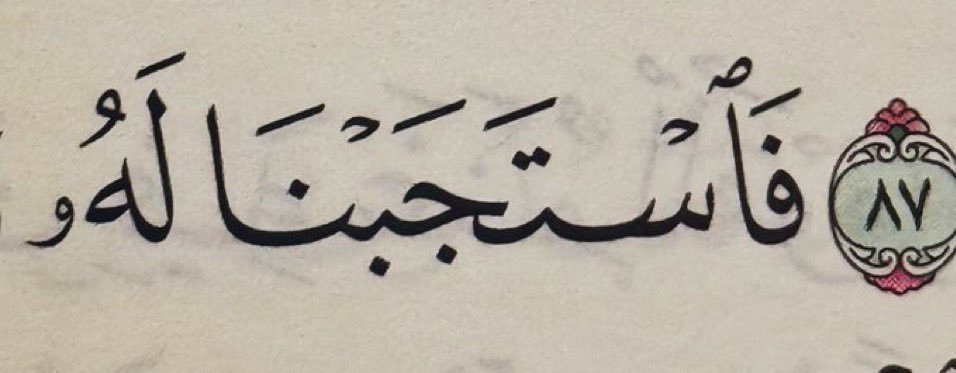 ۝٨٧ فَٱسْتَجَبْنَا لَهُۥ